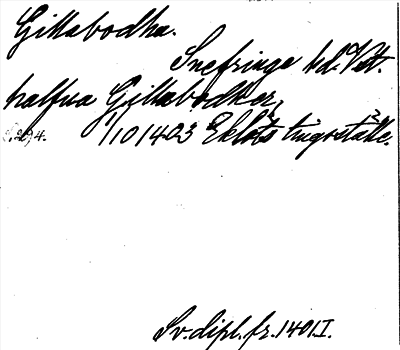 Gillabodha.
Snefringe hd. Vst.
halfua Gillabodher,
s. 294. 1/10 1403 Eklöts tingsställe.
Sv. dipl. fr. 1401. I.